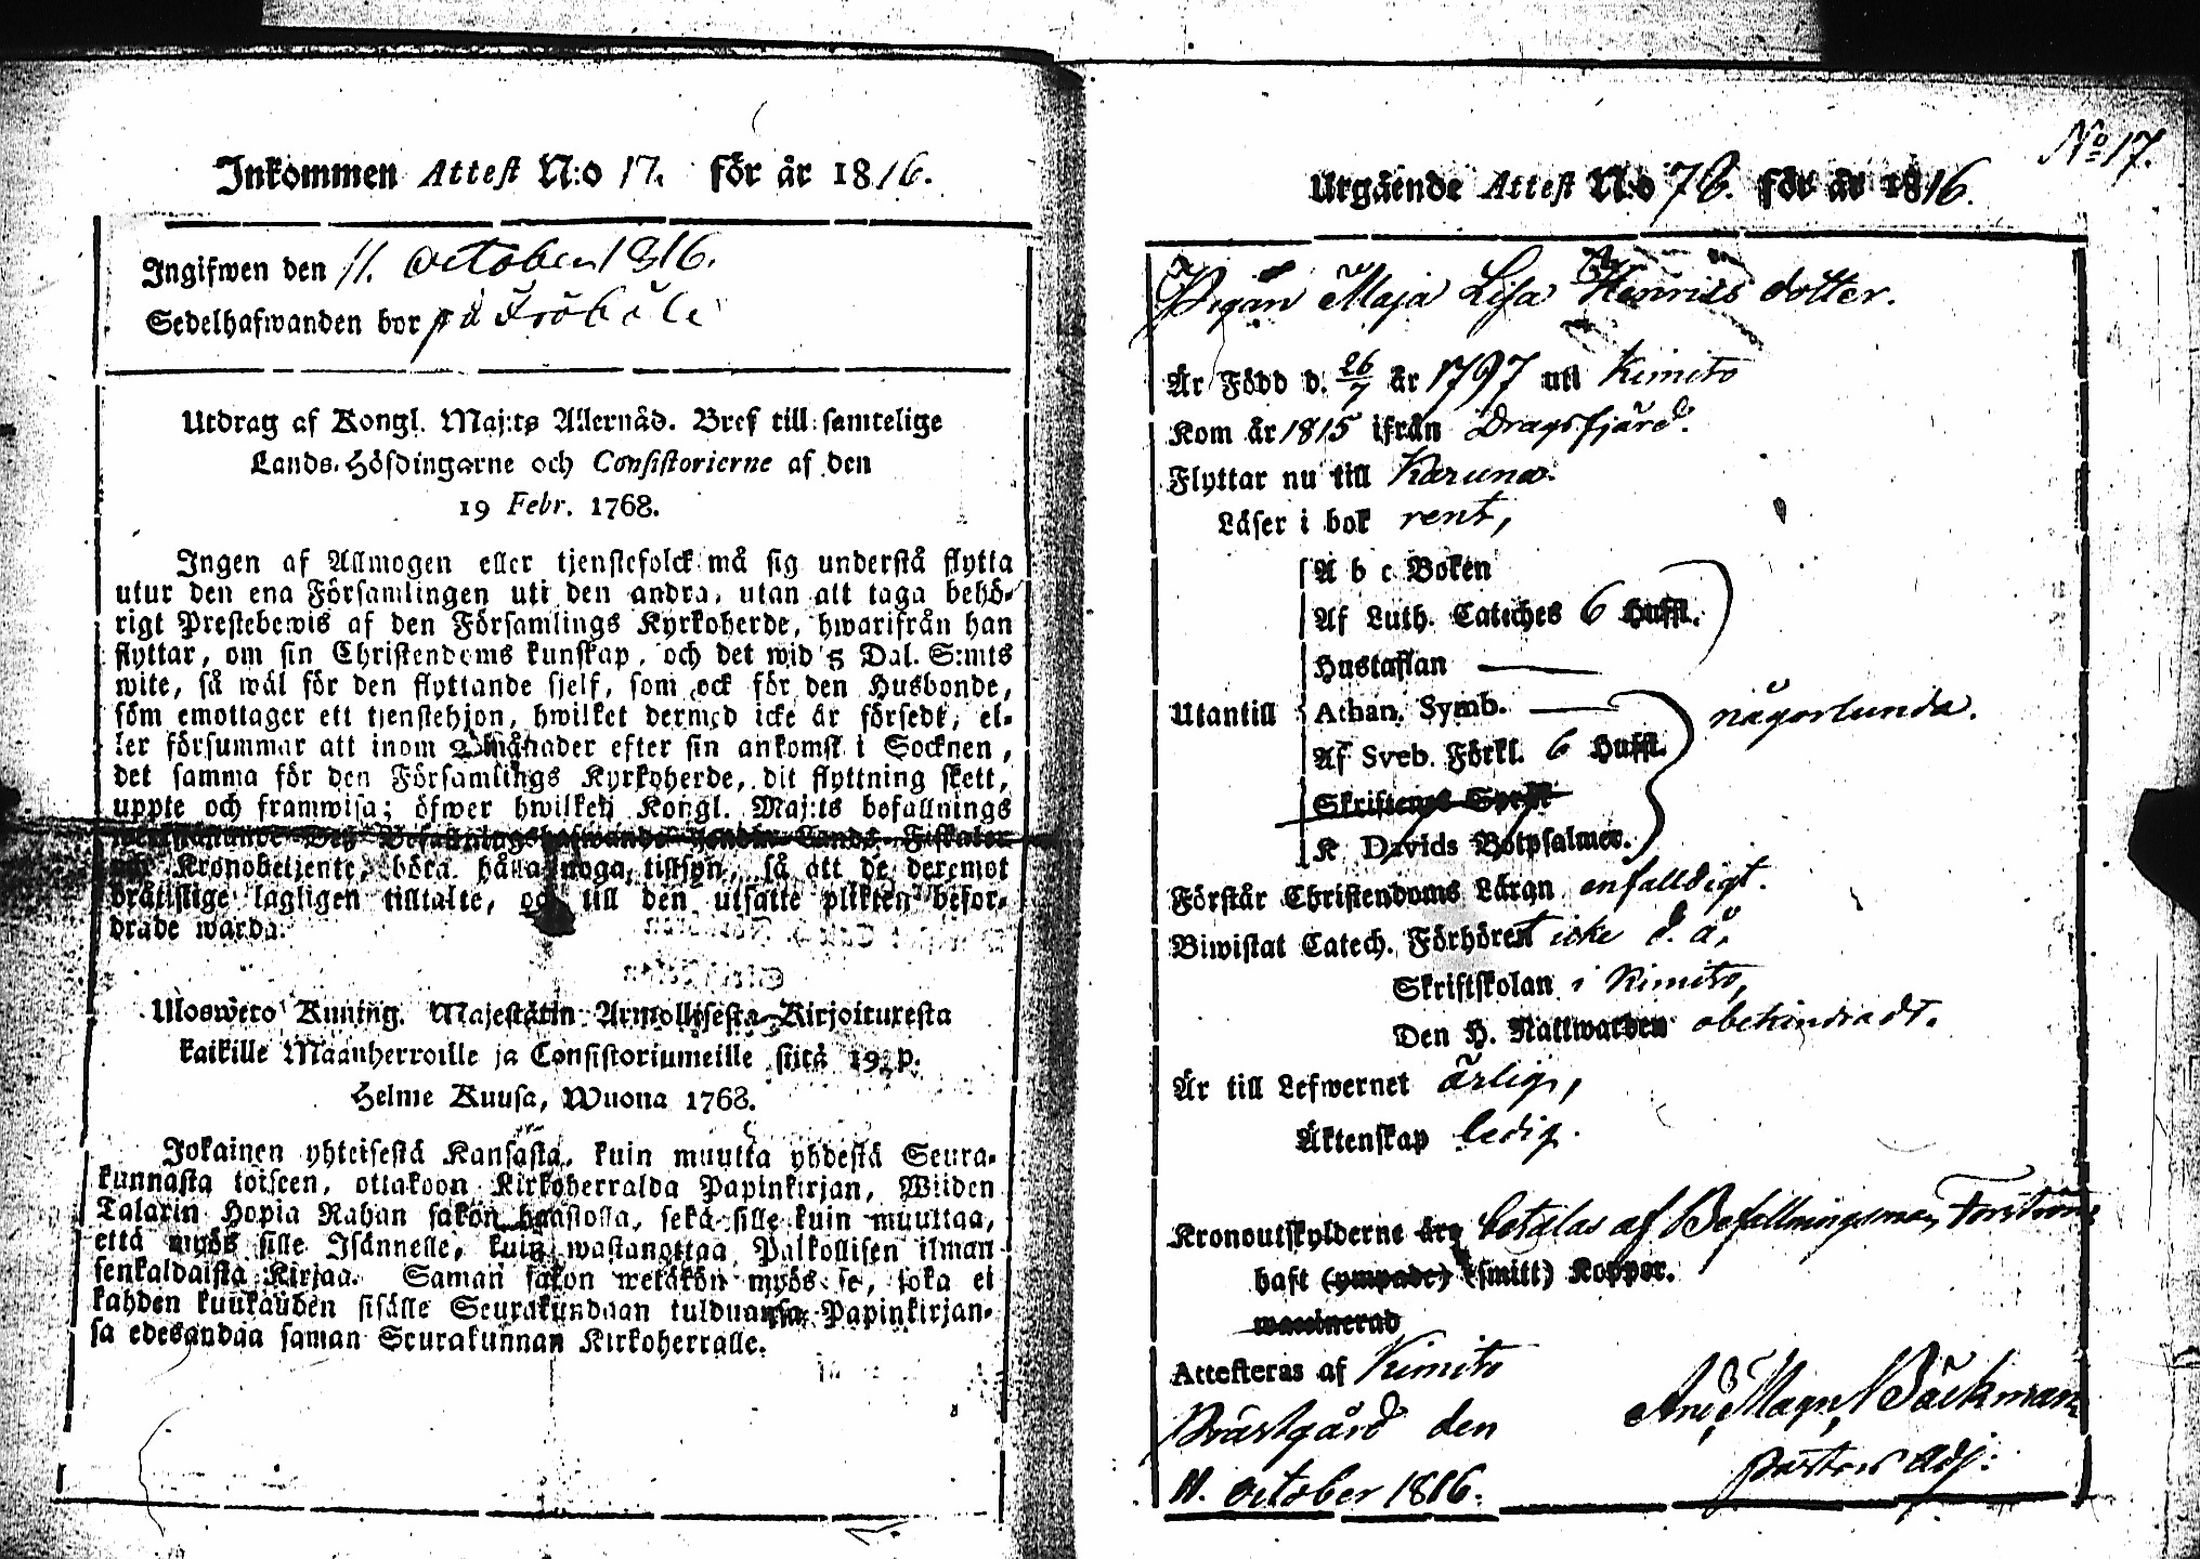 Inkommen Attest N:o 17. för år 1816.
Ingifwen den 11. October 1816.
Sedelhafwanden bor på Fröböle
Utdrag af Kongl. Maj:ts Allernåd. Bref till samtelige
Lands-Höfdingarne och Consistorierne af den
19 Febr. 1768.
Ingen af Allmogen eller tjenstefolck må sig understå flytta
utur den ena Församlingen uti den andra, utan att taga behö-
rigt Prestebewis af den Församlings Kyrkoherde, hwarifrån han
flyttar, om sin Christendoms kunskap, och det wid 5 Dal. S:mts
wite, så wäl för den flyttande sjelf, som ock för den Husbonde,
som emottager ett tjenstehjon, hwilket dermed icke är försedt, el-
ler försummar att inom 2 månader efter sin ankomst i Socknen,
det samma för den Församlings Kyrkoherde, dit flyttning skett,
uppte och framwisa; öfwer hwilken Kongl. Maj:ts befallnings
Befallningshafwande Lands-Fiskaler
Kronobetjente, böra hålla noga tillsyn, så att de deremot
bråttslige lagligen tilltalte, och till den utsatte plikten befor-
drade warda.
Ulosweto Kuning. Majestätin Armollisesta Kirjoituxesta
kaikille Maanherroille ja Consistoriumeille siitä 19 p.
Helme Kuusa, Wuona 1768.
Jokainen yhteisestä Kansasta, kuin muutta yhdestä Seura-
kunnasta toiseen, ottakoon Kirkoherralda Papinkirjan, Wiiden
Talarin Hopia Rahan sakon haastolla, sekä sille kuin muuttaa,
että myös sille Isännelle, kuin wastanottaa Palkollisen ilman
senkaldaista Kirjaa. Saman sakon wetäkön myös se, joka ei
kahden kuukauden sisälle Seurakundaan tulduansa Papinkirjan-
sa edesandaa saman Seurakunnan Kirkoherralle.
No 17.
Utgående Attest N:o 76. för år 1816.
Pigan Maja Lisa Henrics dotter.
Är Född d. 26/7 år 1797 uti Kimito
Kom år 1815 ifrån Dragsfjärd.
Flyttar nu till Karuna.
Läser i bok rent,
A b c Boken
Af Luth. Cateches 6 Hufst.
Hustaflan
Utantill Athan. Symb. någorlunda.
Af Sveb. Förkl. 6 Hufst.
Skriftenes Språk
K Davids Botpsalmer.
Förstår Christendoms Läran enfalldigt.
Biwistat Catech. Förhören icke d. å.
Skriftskolan i Kimito,
Den H. Nattwarden obehindradt.
Är till Lefwernet ärlig,
Äktenskap ledig.
Kronoutskylderne äro betalas af Befallningsman Forström
haft (ympade) (smitt) Koppor.
waccinerad
Attesteras af Kimito
Prästgård den And. Magn. Böckman
11. October 1816. pastors adj.